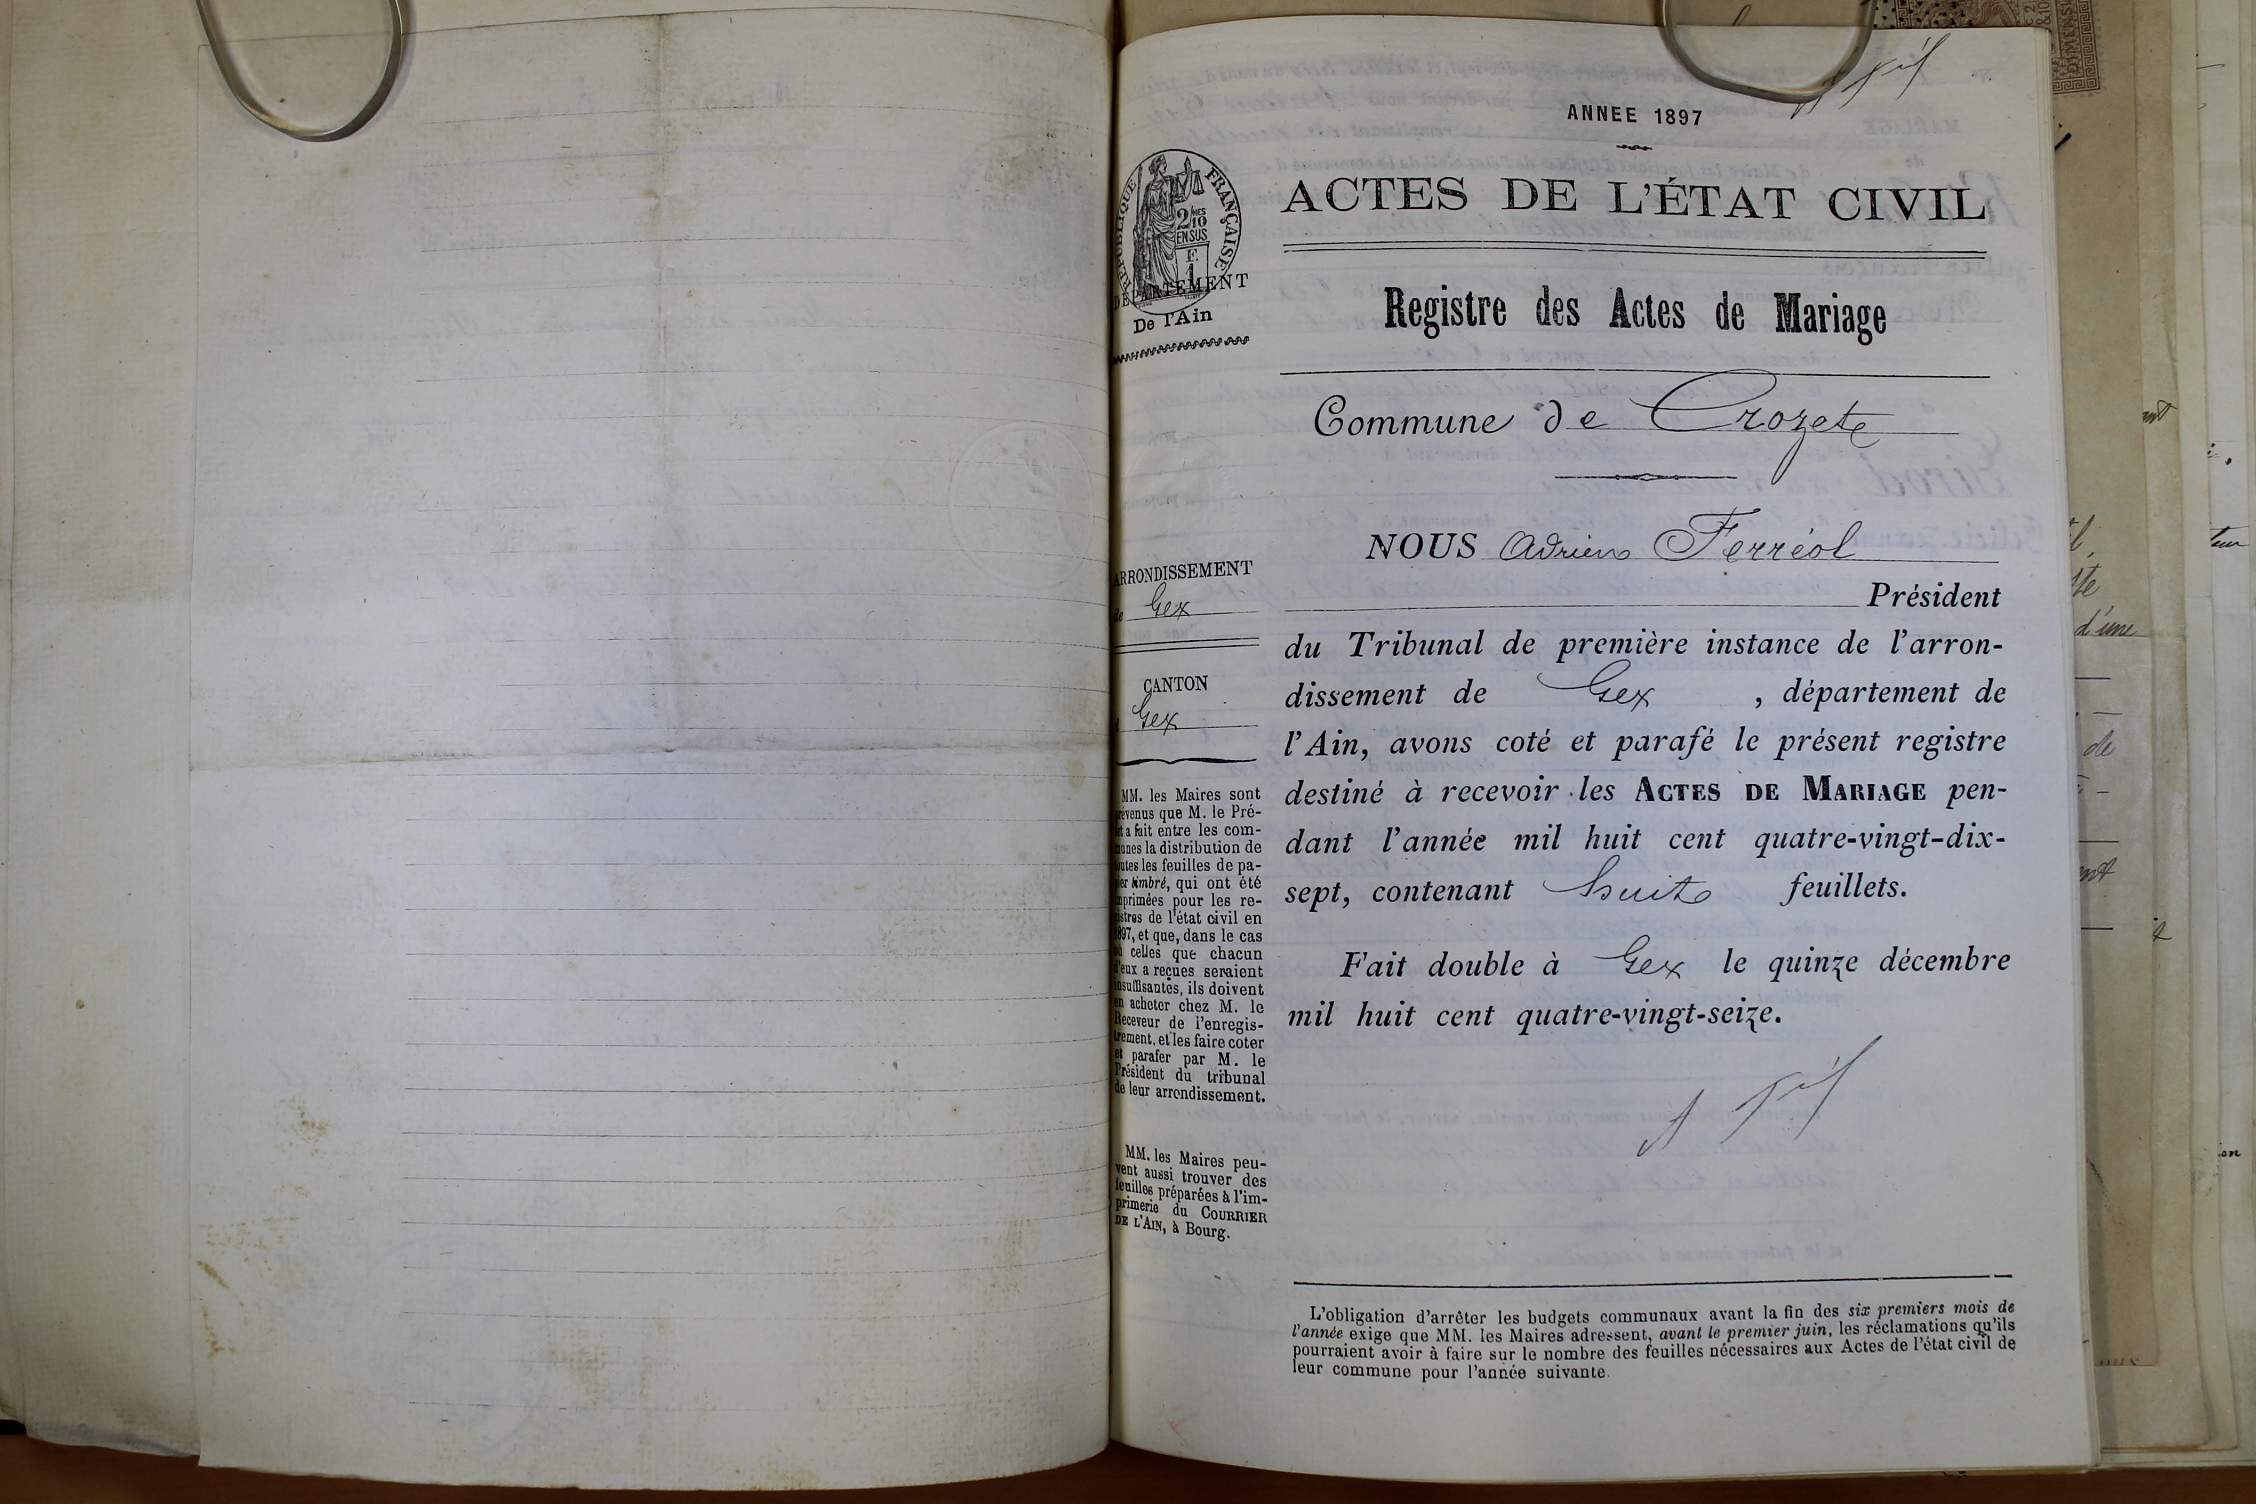 ANNEE 1897
ACTES DE L'ÉTAT CIVIL
RÉPUBLIQUE FRANÇAISE
2/10
EN SUS
F.
1
DÉPARTEMENT
De l'Ain
Registre des Actes de Mariage
Commune de Crozet
NOUS Adrien Ferréol
Président
du Tribunal de première instance de l'arron-
dissement de Gex , département de
l'Ain, avons coté et parafé le présent registre
destiné à recevoir les ACTES DE MARIAGE pen-
dant l'année mil huit cent quatre-vingt-dix-
sept, contenant huit feuillets.
Fait double à Gex le quinze décembre
mil huit cent quatre-vingt-seize.
ARRONDISSEMENT
de Gex
CANTON
Gex
MM. les Maires sont
prévenus que M. le Pré-
fet a fait entre les com-
munes la distribution de
toutes les feuilles de pa-
pier timbré, qui ont été
imprimées pour les re-
gistres de l'état civil en
1897, et que, dans le cas
où celles que chacun
d'eux a reçues seraient
insuffisantes, ils doivent
en acheter chez M. le
Receveur de l'enregis-
trement, et les faire coter
et parafer par M. le
Président du tribunal
de leur arrondissement.
MM. les Maires peu-
vent aussi trouver des
feuilles préparées à l'im-
primerie du COURRIER
DE L'AIN, à Bourg.
L'obligation d'arrêter les budgets communaux avant la fin des six premiers mois de
l'année exige que MM. les Maires adressent, avant le premier juin, les réclamations qu'ils
pourraient avoir à faire sur le nombre des feuilles nécessaires aux Actes de l'état civil de
leur commune pour l'année suivante.
d'une
de